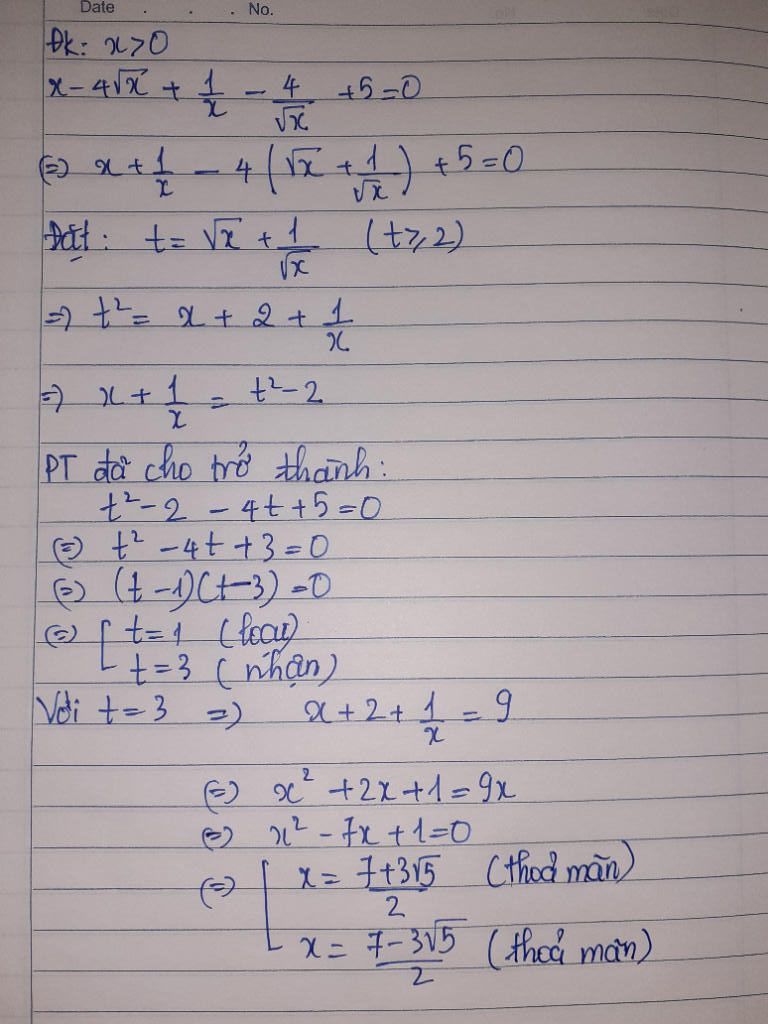 Date . . . No.
Đk: x>0
x - 4√x + 1/x - 4/√x + 5 = 0
(=) x + 1/x - 4(√x + 1/√x) + 5 = 0
Đặt: t = √x + 1/√x (t ⩾ 2)
=) t² = x + 2 + 1/x
=) x + 1/x = t² - 2
PT đã cho trở thành:
t² - 2 - 4t + 5 = 0
(=) t² - 4t + 3 = 0
(=) (t - 1)(t - 3) = 0
(=) [ t = 1 (loại)
t = 3 (nhận)
Với t = 3 =) x + 2 + 1/x = 9
(=) x² + 2x + 1 = 9x
(=) x² - 7x + 1 = 0
(=) [ x = (7+3√5)/2 (thoả mãn)
x = (7-3√5)/2 (thoả mãn)